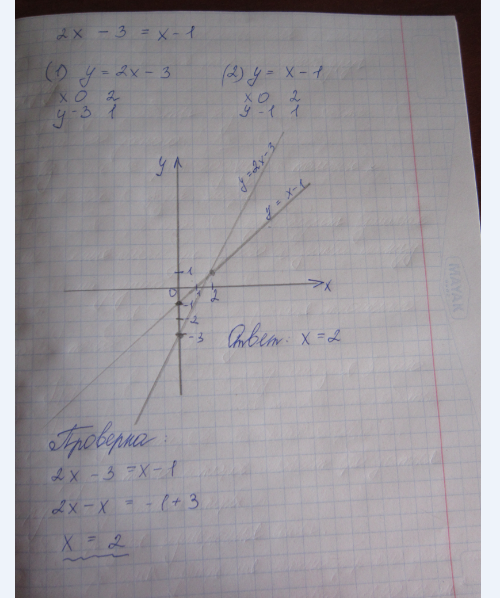 2x - 3 = x - 1
(1) y = 2x - 3 (2) y = x - 1
x 0 2 x 0 2
y -3 1 y -1 1
y
y = 2x - 3
y = x - 1
1
0 1 2 x
-1
-2
-3
Ответ. x = 2
Проверка:
2x - 3 = x - 1
2x - x = -1 + 3
x = 2